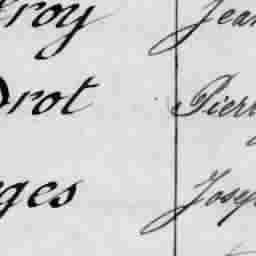 roy Jean
Drot Pierr
ges Josep